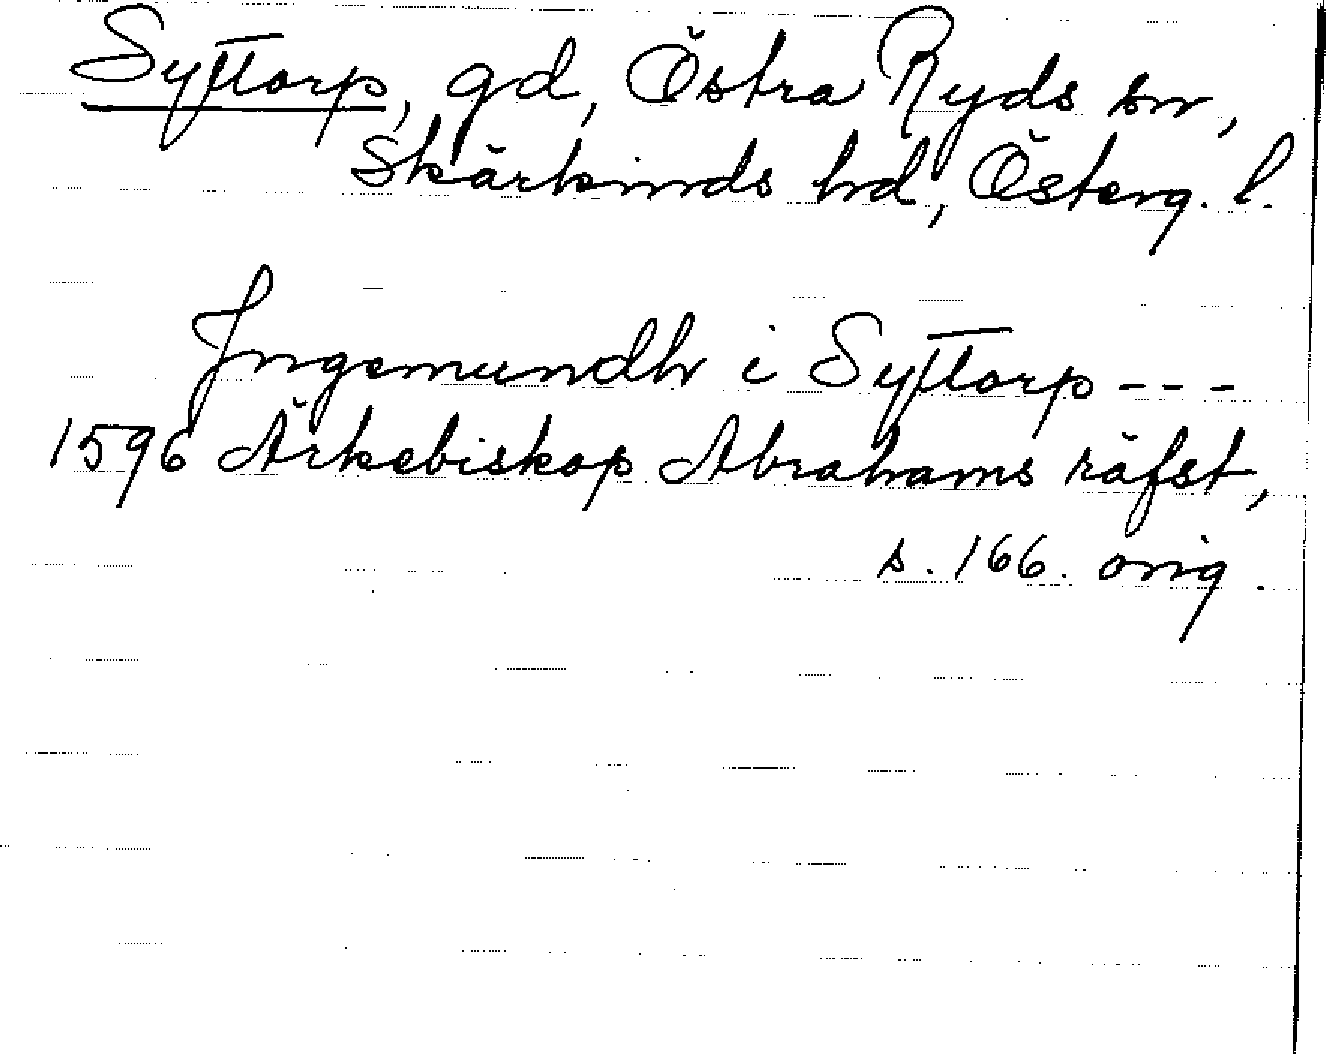 Syttorp, gd, Östra Ryds sn,
Skärkinds hd, Österg. l.
Jngemundh i Syttorp ---
1596 Ärkebiskop Abrahams räfst,
s. 166. orig.